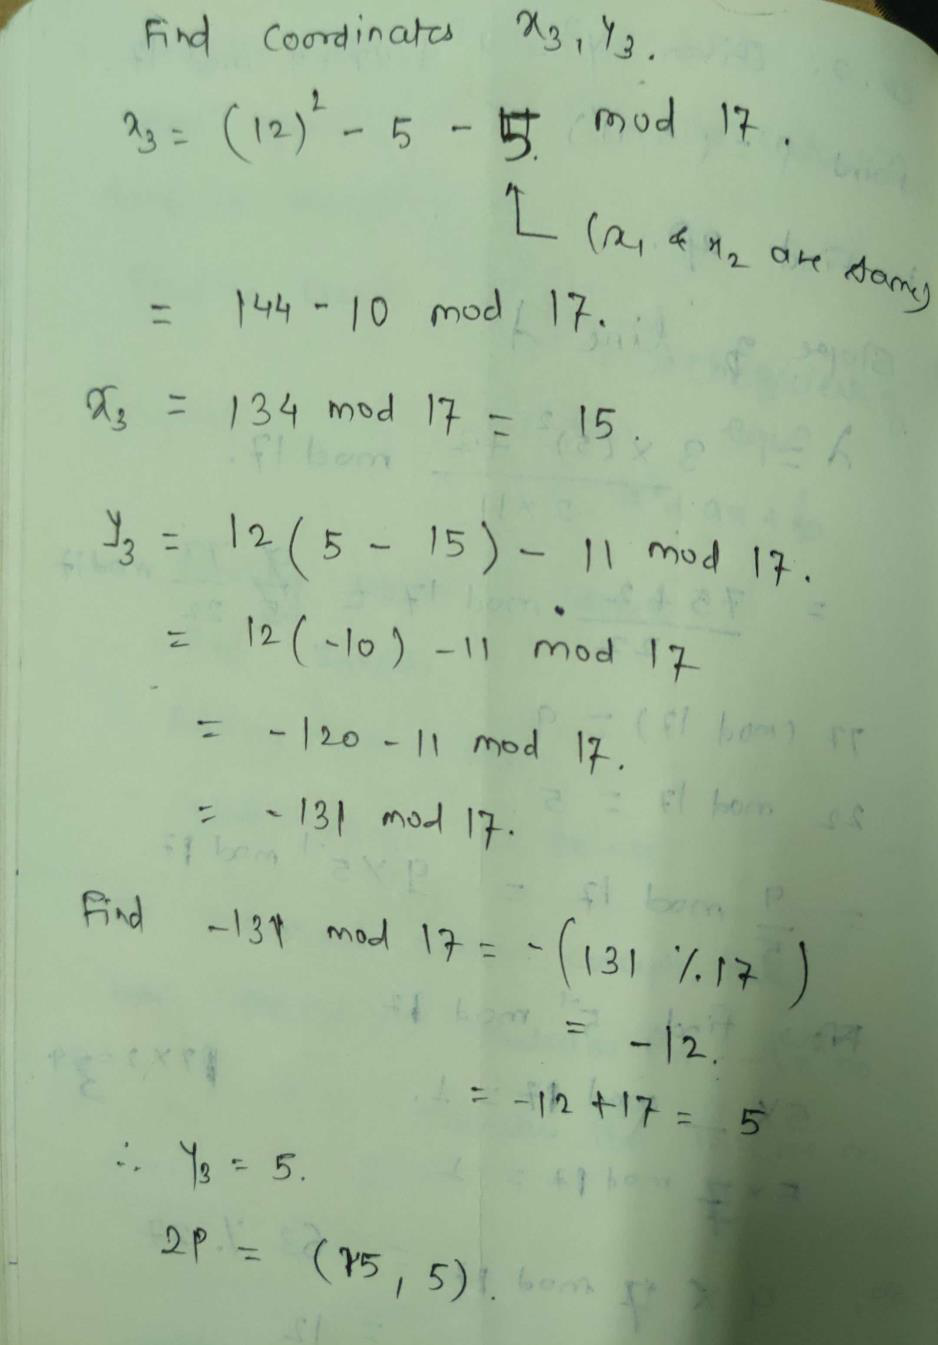 Find coordinates x₃, y₃.
x₃ = (12)² - 5 - 5. mod 17.
(x₁ & x₂ are same)
= 144 - 10 mod 17.
x₃ = 134 mod 17 = 15.
y₃ = 12(5 - 15) - 11 mod 17.
= 12(-10) - 11 mod 17
= -120 - 11 mod 17.
= -131 mod 17.
Find -131 mod 17 = -(131 % 17)
= -12.
= -12 + 17 = 5
∴ y₃ = 5.
2P = (15, 5).